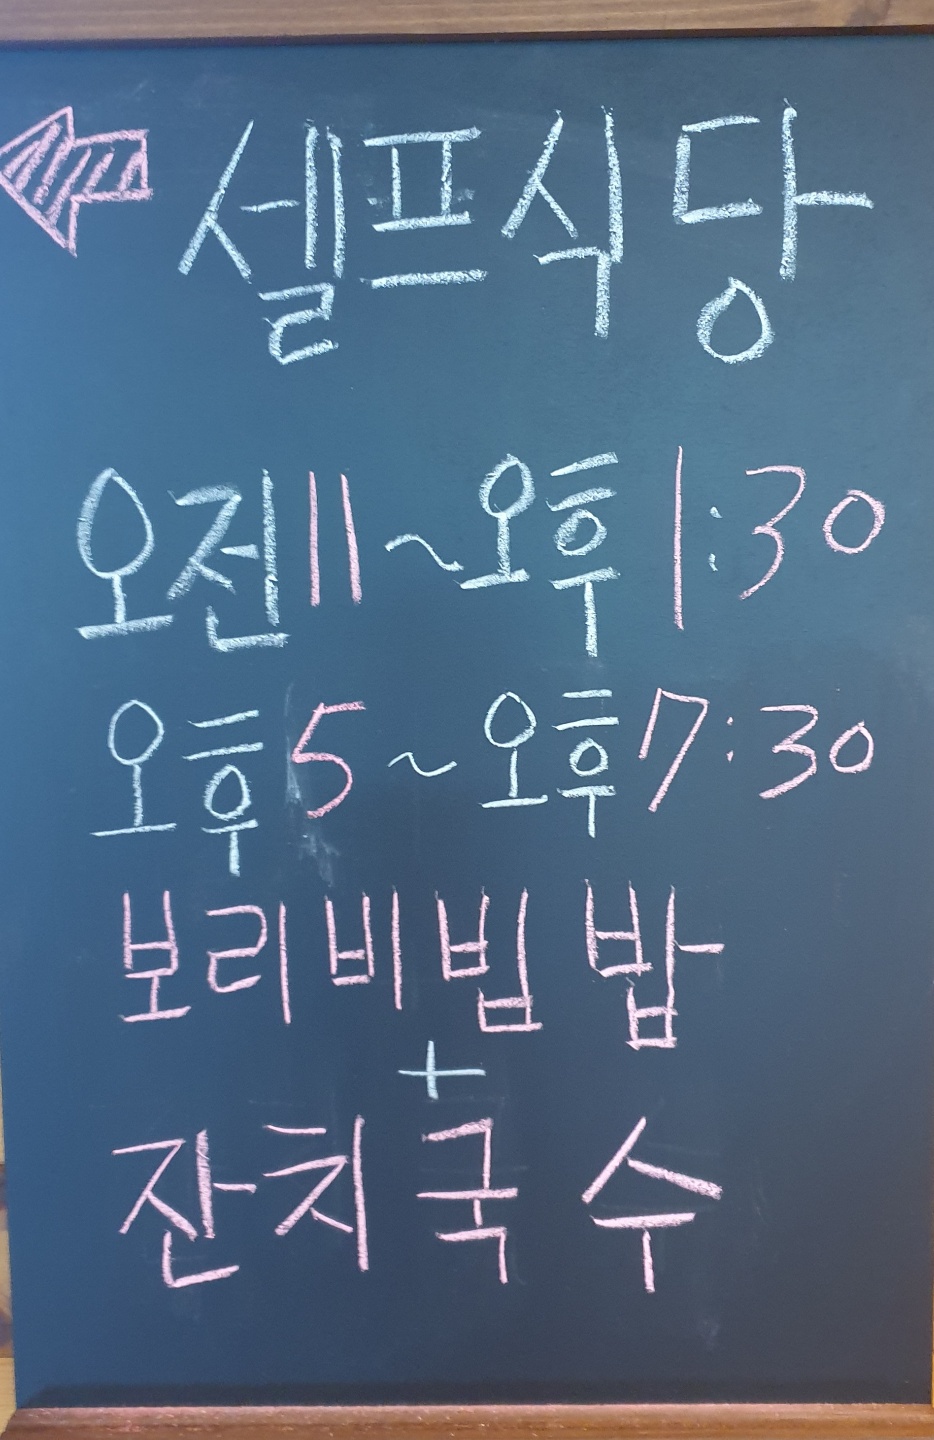 셀프식당
오전11~오후1:30
오후5~오후7:30
보리비빔밥
+
잔치국수